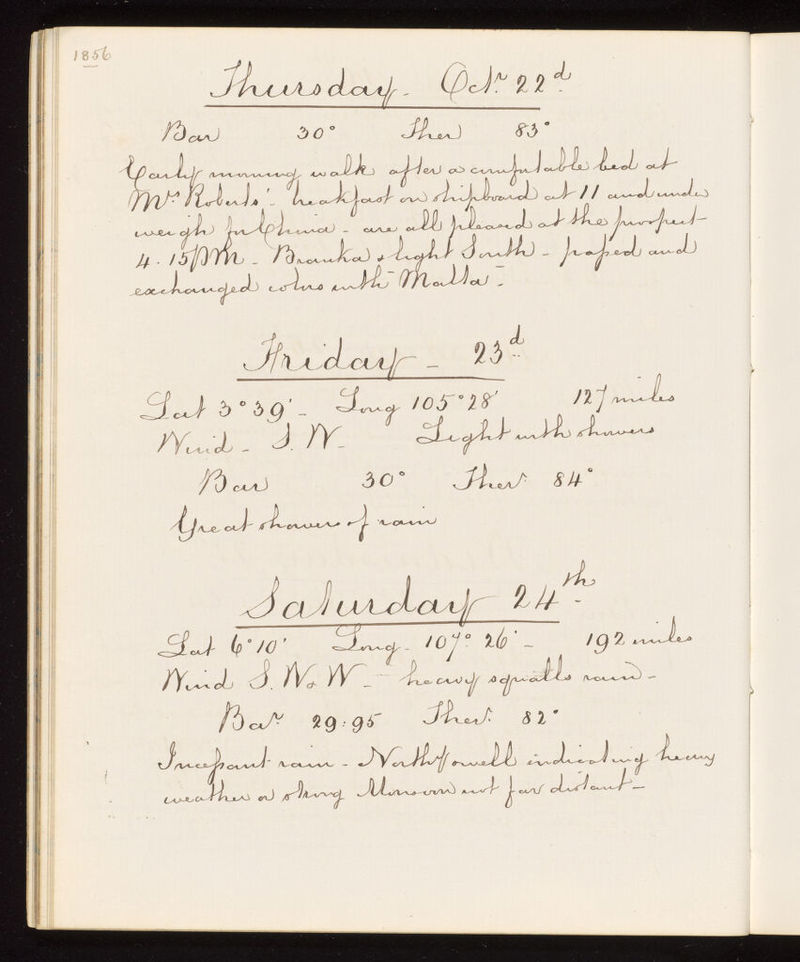 1856
Thursday - Octr. 22d.
Bar 30° Ther 83°
Early morning walk after a comfortable bed at
Mrs Roberts' - breakfast on shipboard at 11 and under
weigh for China - are all pleased at the prospect -
4.15 PM - Branka light South - passed and
exchanged colors with "Malta".
Friday - 23d.
Lat 3°39' - Long 105°28' 127 miles
Wind - S. W - Light with showers
Bar 30° Ther. 84°
Great showers of rain
Saturday 24th.
Lat 6°10' Long - 107° 26' - 192 miles
Wind S. W & W - heavy squalls rain -
Bar. 29:95 Ther. 82°
Incessant rain - Northy swell indicating heavy
weather or strong Monsoon not far distant -